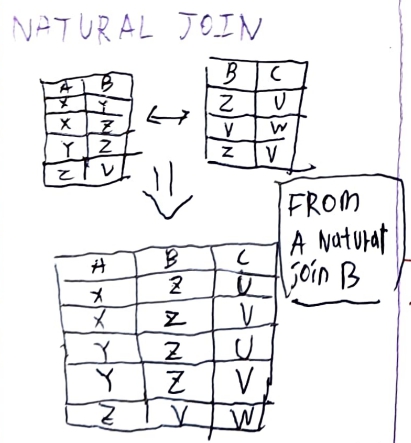 NATURAL JOIN
A B
X Y
X Z
Y Z
Z V
B C
Z U
V W
Z V
FROM
A Natural
join B
A B C
X Z U
X Z V
Y Z U
Y Z V
Z V W